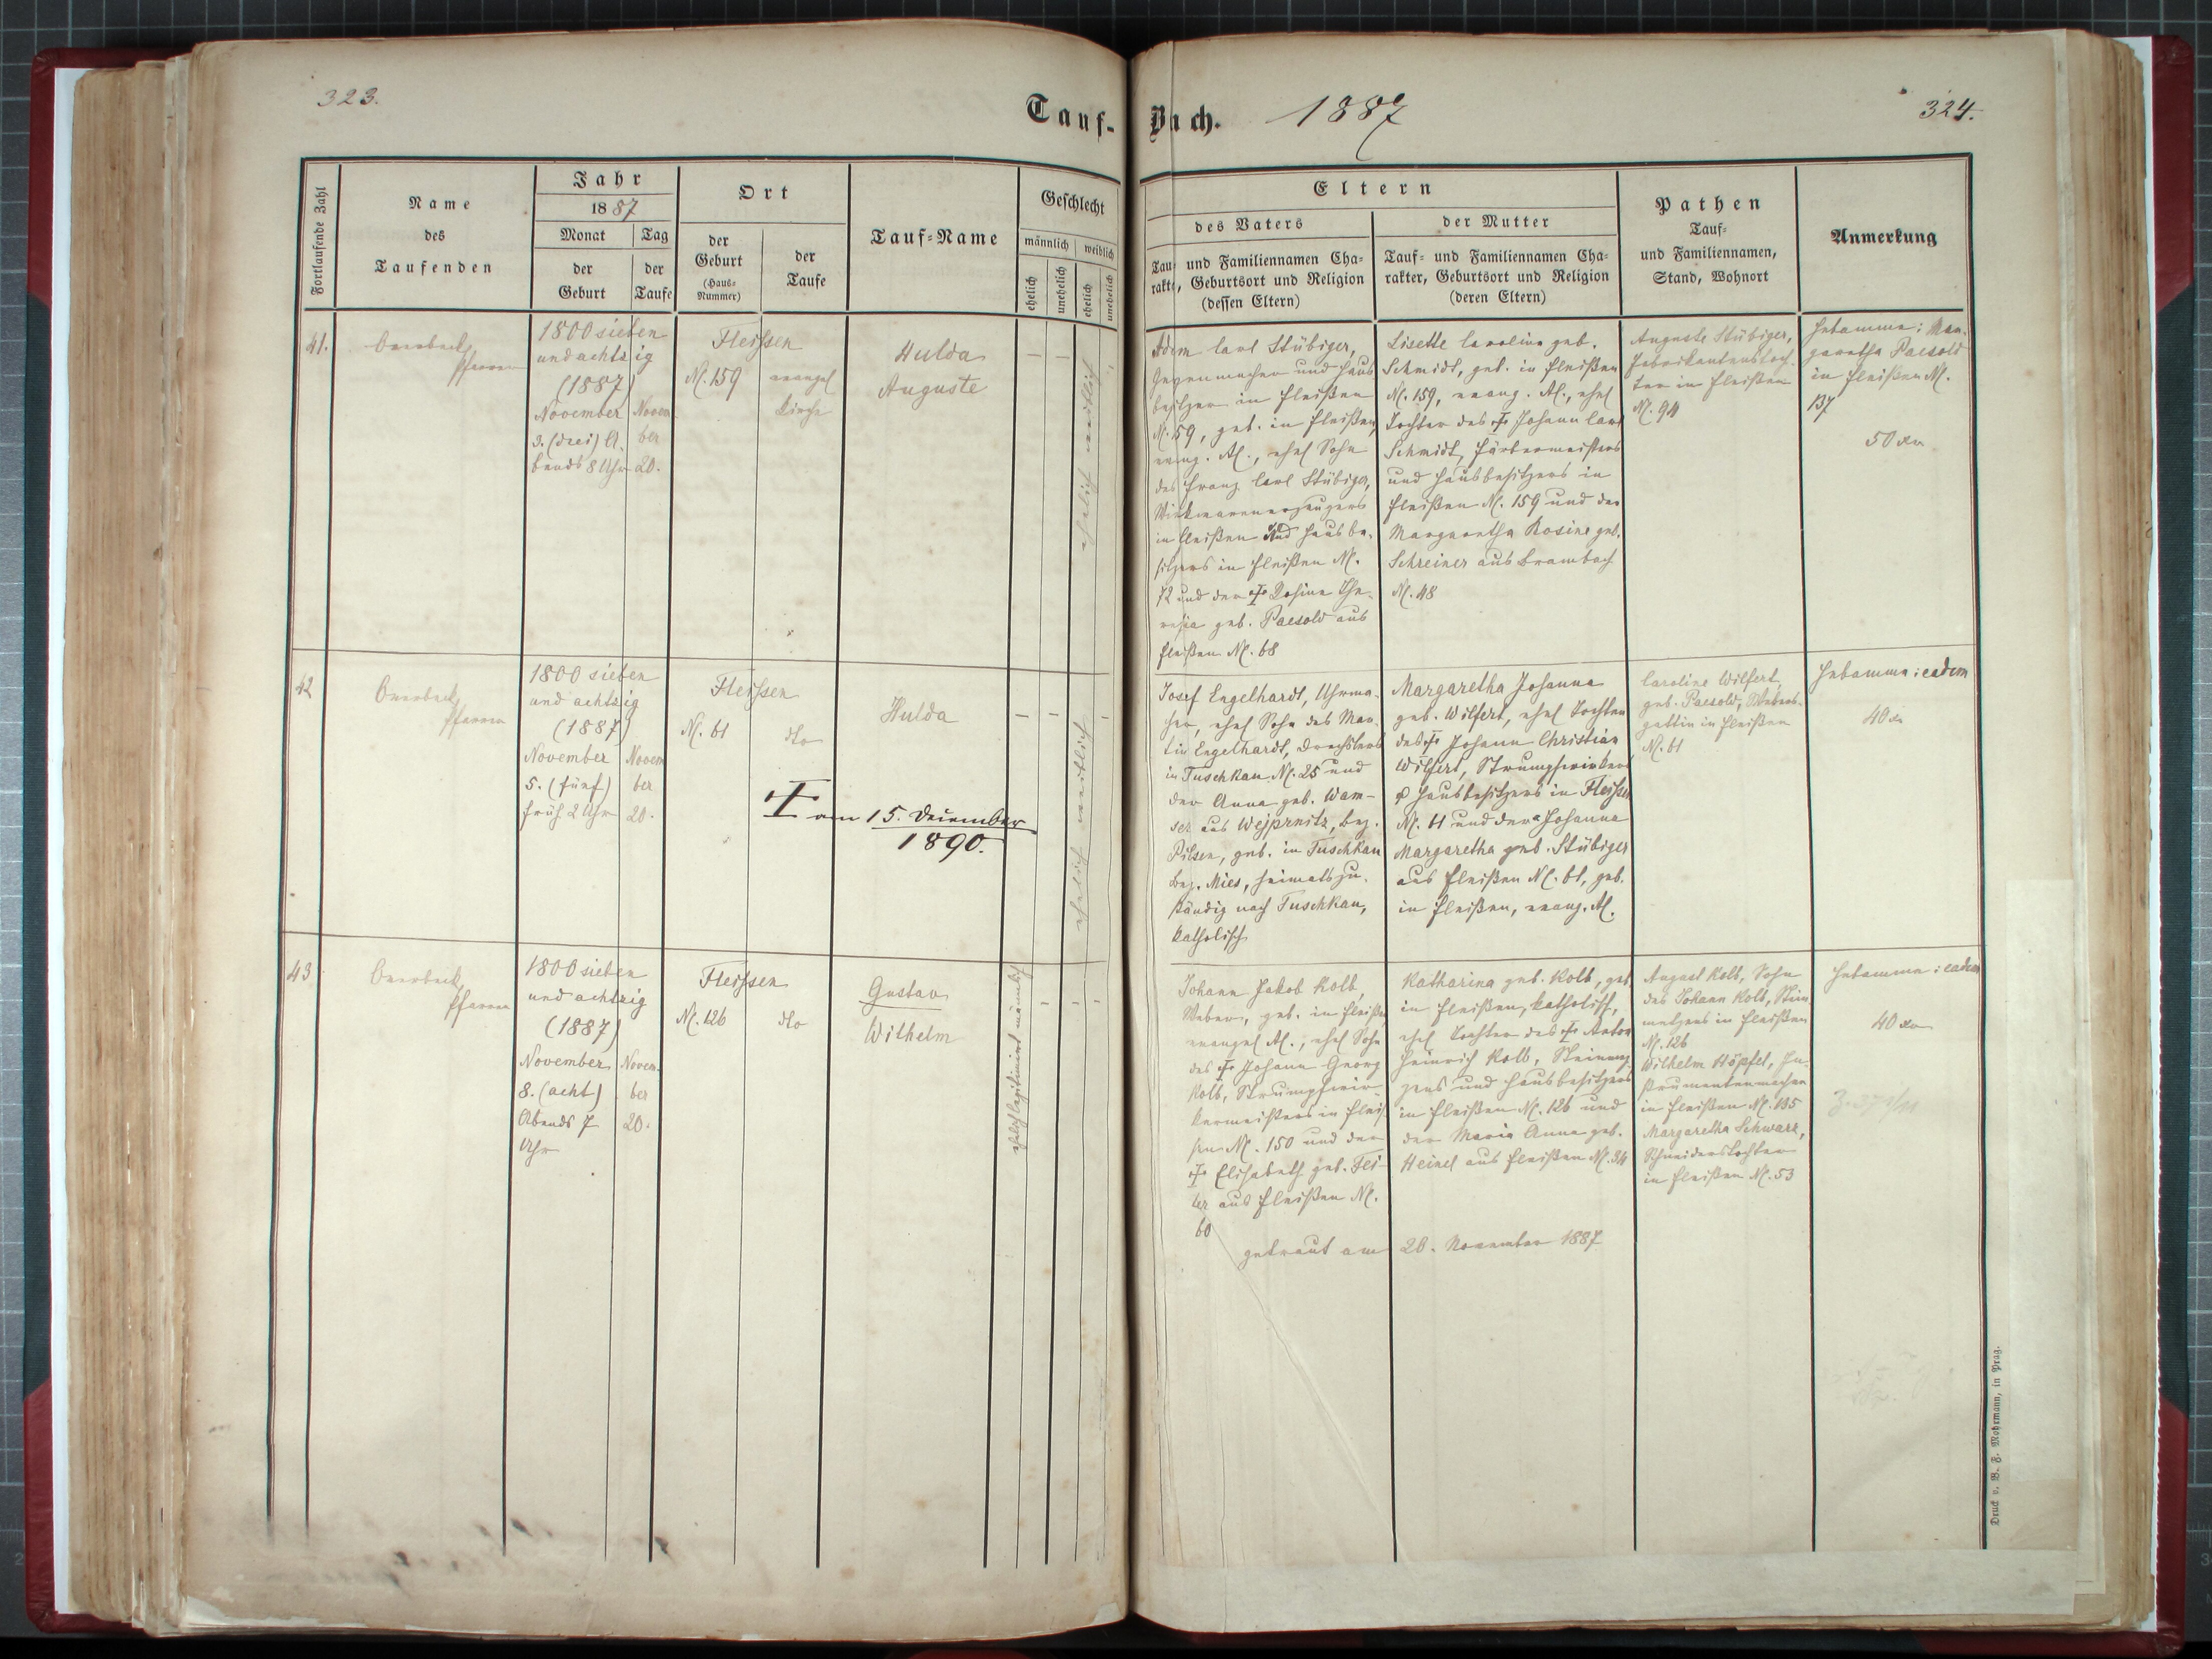 323.
Tauf-
Buch.
1887
324.
Fortlaufende Zahl
Name
des
Taufenden
Jahr
1887
Monat
Tag
der
Geburt
der
Taufe
Ort
der
Geburt
(Haus-
Nummer)
der
Taufe
Tauf-Name
Geschlecht
männlich
weiblich
ehelich
unehelich
ehelich
unehelich
Eltern
des Vaters
Tauf- und Familiennamen Cha-
rakter, Geburtsort und Religion
(dessen Eltern)
der Mutter
Tauf- und Familiennamen Cha-
rakter, Geburtsort und Religion
(deren Eltern)
Pathen
Tauf-
und Familiennamen,
Stand, Wohnort
Anmerkung
41.
Overbeck
Pfarrer
1800 sieben
und achtzig
(1887)
November
3. (drei) A
bends 8 Uhr
Novem
ber
20.
Fleissen
N. 159
evangel
Kirche
Hulda
Auguste
ehelich weiblich
Adam Carl Stübiger,
Geigenmacher und Haus
besitzer in Fleißen
N. 159, geb. in Fleißen,
evang. AC., ehel Sohn
des Franz Carl Stübiger,
Wirkwarenerzeugers
in Fleißen und Hausbe-
sitzers in Fleißen N.
72 und der † Rosine The-
resia geb. Paesold aus
Fleißen N. 68
Lisette Caroline geb.
Schmidt, geb. in Fleißen
N. 159, evang. AC., ehel
Tochter des † Johann Carl
Schmidt, Färbermeisters
und Hausbesitzers in
Fleißen N. 159 und der
Margaretha Rosine geb.
Schreiner aus Brambach
N. 48
Auguste Stübiger,
Fabrikantenstoch-
ter in Fleißen
N. 94
Hebamme: Mar-
garetha Paesold
in Fleißen N.
137
50 xr
42
Overbeck
Pfarrer
1800 sieben
und achtzig
(1887)
November
5. (fünf)
früh 2 Uhr
Novem
ber
20.
Fleissen
N. 61
dto
Hulda
† am 15. Dezember
1890.
ehelich weiblich
Josef Engelhardt, Uhrma-
cher, ehel Sohn des Mar-
tin Engelhardt, Drechslers
in Tuschkau N. 25 und
der Anna geb. Wam-
ser aus Wejprnitz, Bez.
Pilsen, geb. in Tuschkau
Bez. Mies, heimatszu-
ständig nach Tuschkau,
katholisch
Margaretha Johanna
geb. Wilfert, ehel Tochter
des † Johann Christian
Wilfert, Strumpfwirkers
& Hausbesitzers in Fleissen
N. 61 und der Johanna
Margaretha geb. Stübiger
aus Fleißen N. 61, geb.
in Fleißen, evang. AC.
Caroline Wilfert
geb. Paesold, Webers-
gattin in Fleißen
N. 61
Hebamme: eadem
40 xr
43
Overbeck
Pfarrer
1800 sieben
und achtzig
(1887)
November
8. (acht)
Abends 7
Uhr
Novem-
ber
20.
Fleissen
N. 126
dto
Gustav
Wilhelm
ehelich legitimirt männlich
Johann Jakob Kolb,
Weber, geb. in Fleißen
evangel AC., ehel Sohn
des † Johann Georg
Kolb, Strumpfwir-
kermeisters in Fleis-
sen N. 150 und der
† Elisabeth geb. Fei-
ler aus Fleißen N.
60
Katharina geb. Kolb, geb.
in Fleißen, katholisch,
ehel Tochter des † Anton
Heinrich Kolb, Steinmez-
zers und Hausbesitzers
in Fleißen N. 126 und
der Maria Anna geb.
Heinel aus Fleißen N. 34
getraut am 28. November 1887
August Kolb, Sohn
des Johann Kolb, Stein
metzers in Fleißen
N. 126
Wilhelm Höpfel, In-
strumentenmacher
in Fleißen N. 135
Margaretha Schwarz,
Schneiderstochter
in Fleißen N. 53
Hebamme: eadem
40 xr
Druck v. B. F. Mohrmann, in Prag.